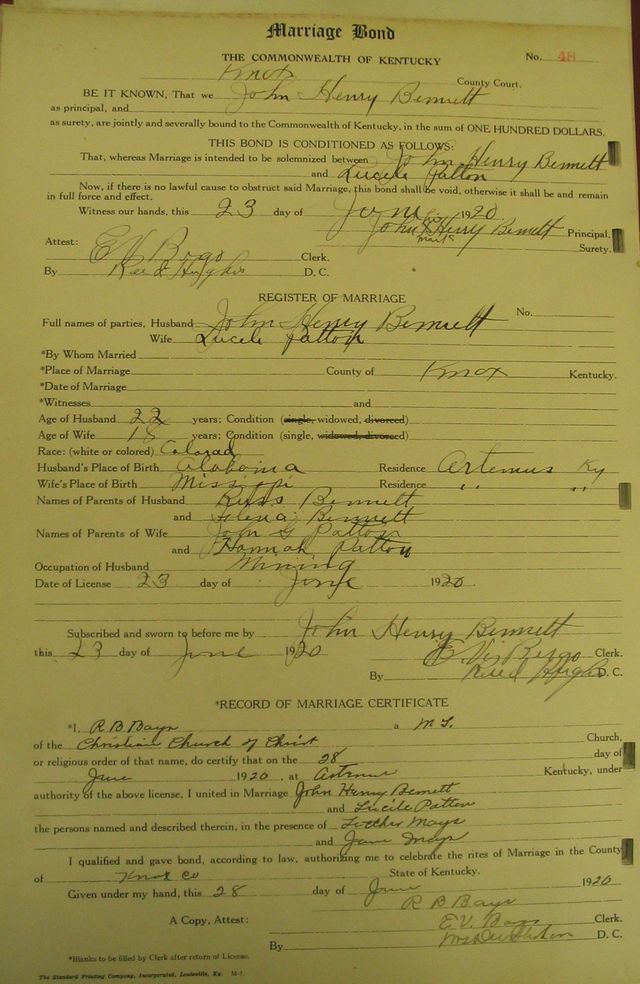 Marriage Bond
THE COMMONWEALTH OF KENTUCKY No. 48
Knox County Court.
BE IT KNOWN, That we John Henry Bennett
as principal, and
as surety, are jointly and severally bound to the Commonwealth of Kentucky, in the sum of ONE HUNDRED DOLLARS.
THIS BOND IS CONDITIONED AS FOLLOWS:
That, whereas Marriage is intended to be solemnized between John Henry Bennett
and Lucile Patton
Now, if there is no lawful cause to obstruct said Marriage, this bond shall be void, otherwise it shall be and remain
in full force and effect.
Witness our hands, this 23 day of June 1920
John Henry Bennett Principal.
mark
Surety.
Attest: Clerk.
By D. C.
REGISTER OF MARRIAGE
Full names of parties, Husband John Henry Bennett No.
Wife Lucile Patton
*By Whom Married
*Place of Marriage County of Knox Kentucky.
*Date of Marriage
*Witnesses and
Age of Husband 22 years; Condition (single, widowed, divorced)
Age of Wife 18 years; Condition (single, widowed, divorced)
Race: (white or colored) Colorad
Husband's Place of Birth Alabama Residence Artemus Ky
Wife's Place of Birth Residence " "
Names of Parents of Husband Bennett
and Bennett
Names of Parents of Wife John G Patton
and Hannah Patton
Occupation of Husband Mining
Date of License 23 day of June 1920
Subscribed and sworn to before me by John Henry Bennett
this 23 day of June 1920
Clerk.
By D. C.
*RECORD OF MARRIAGE CERTIFICATE
*I, R B Bays a M. G.
of the Christian Church of Christ Church,
or religious order of that name, do certify that on the 28 day of
June 1920, at Kentucky, under
authority of the above license, I united in Marriage John Henry Bennett
and Lucile Patton
the persons named and described therein, in the presence of Mays
and Mays
I qualified and gave bond, according to law, authorizing me to celebrate the rites of Marriage in the County
of Knox Co State of Kentucky.
Given under my hand, this 28 day of June 1920
R B Bays
A Copy, Attest: Clerk.
By D. C.
*Blanks to be filled by Clerk after return of License.
The Standard Printing Company, Incorporated, Louisville, Ky. M-7.